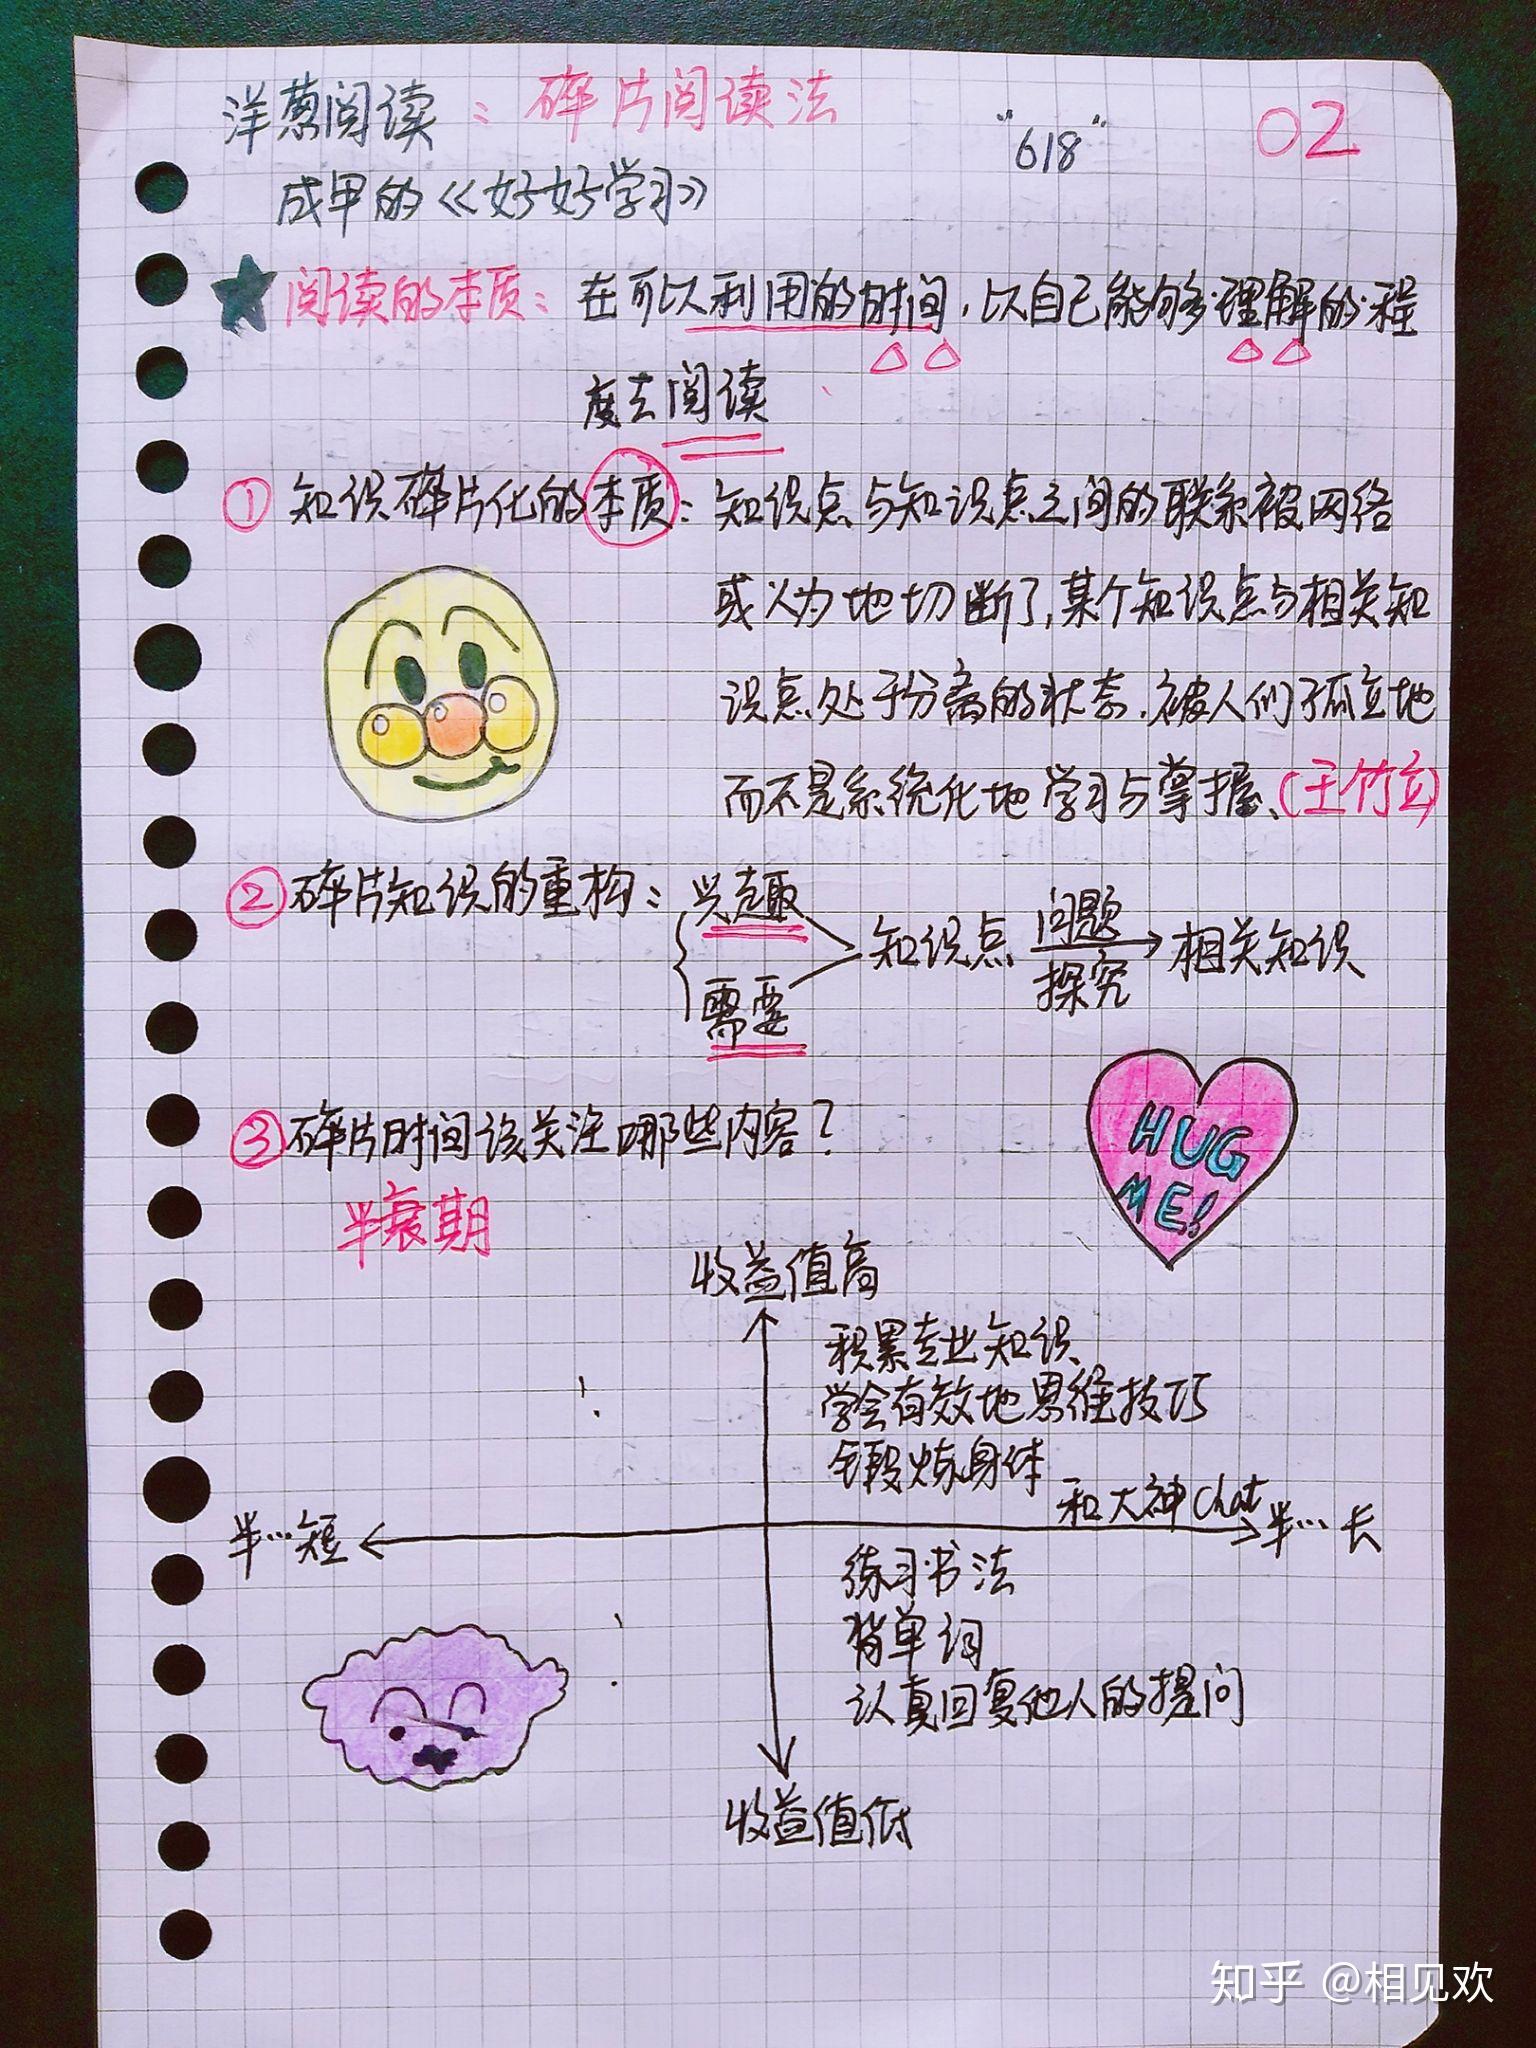 洋葱阅读：碎片阅读法
"618"
02
成甲的《好好学习》
阅读的本质：在可以利用的时间，以自己能够理解的程
度去阅读
① 知识碎片化的本质：知识点与知识点之间的联系被网络
或人为地切断了，某个知识点与相关知
识点处于分离的状态，被人们孤立地
而不是系统化地学习与掌握、(王竹立)
② 碎片知识的重构：兴趣
需要
知识点
问题
探究
相关知识
③ 碎片时间该关注哪些内容？
半衰期
HUG
ME!
收益值高
积累专业知识、
学会有效地思维技巧
锻炼身体
和大神Chat
半…短
半…长
练习书法
背单词
认真回复他人的提问
收益值低
知乎 @相见欢